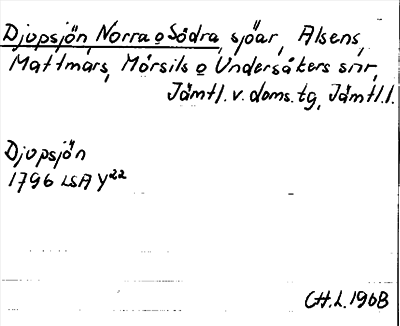 Djupsjön Norra o Södra, sjöar, Alsens,
Mattmars, Mörsils o Undersåkers snr,
Jämtl. v. doms. tg, Jämtl. l.
Djupsjön
1796 LSA Y22
CH.L. 1968